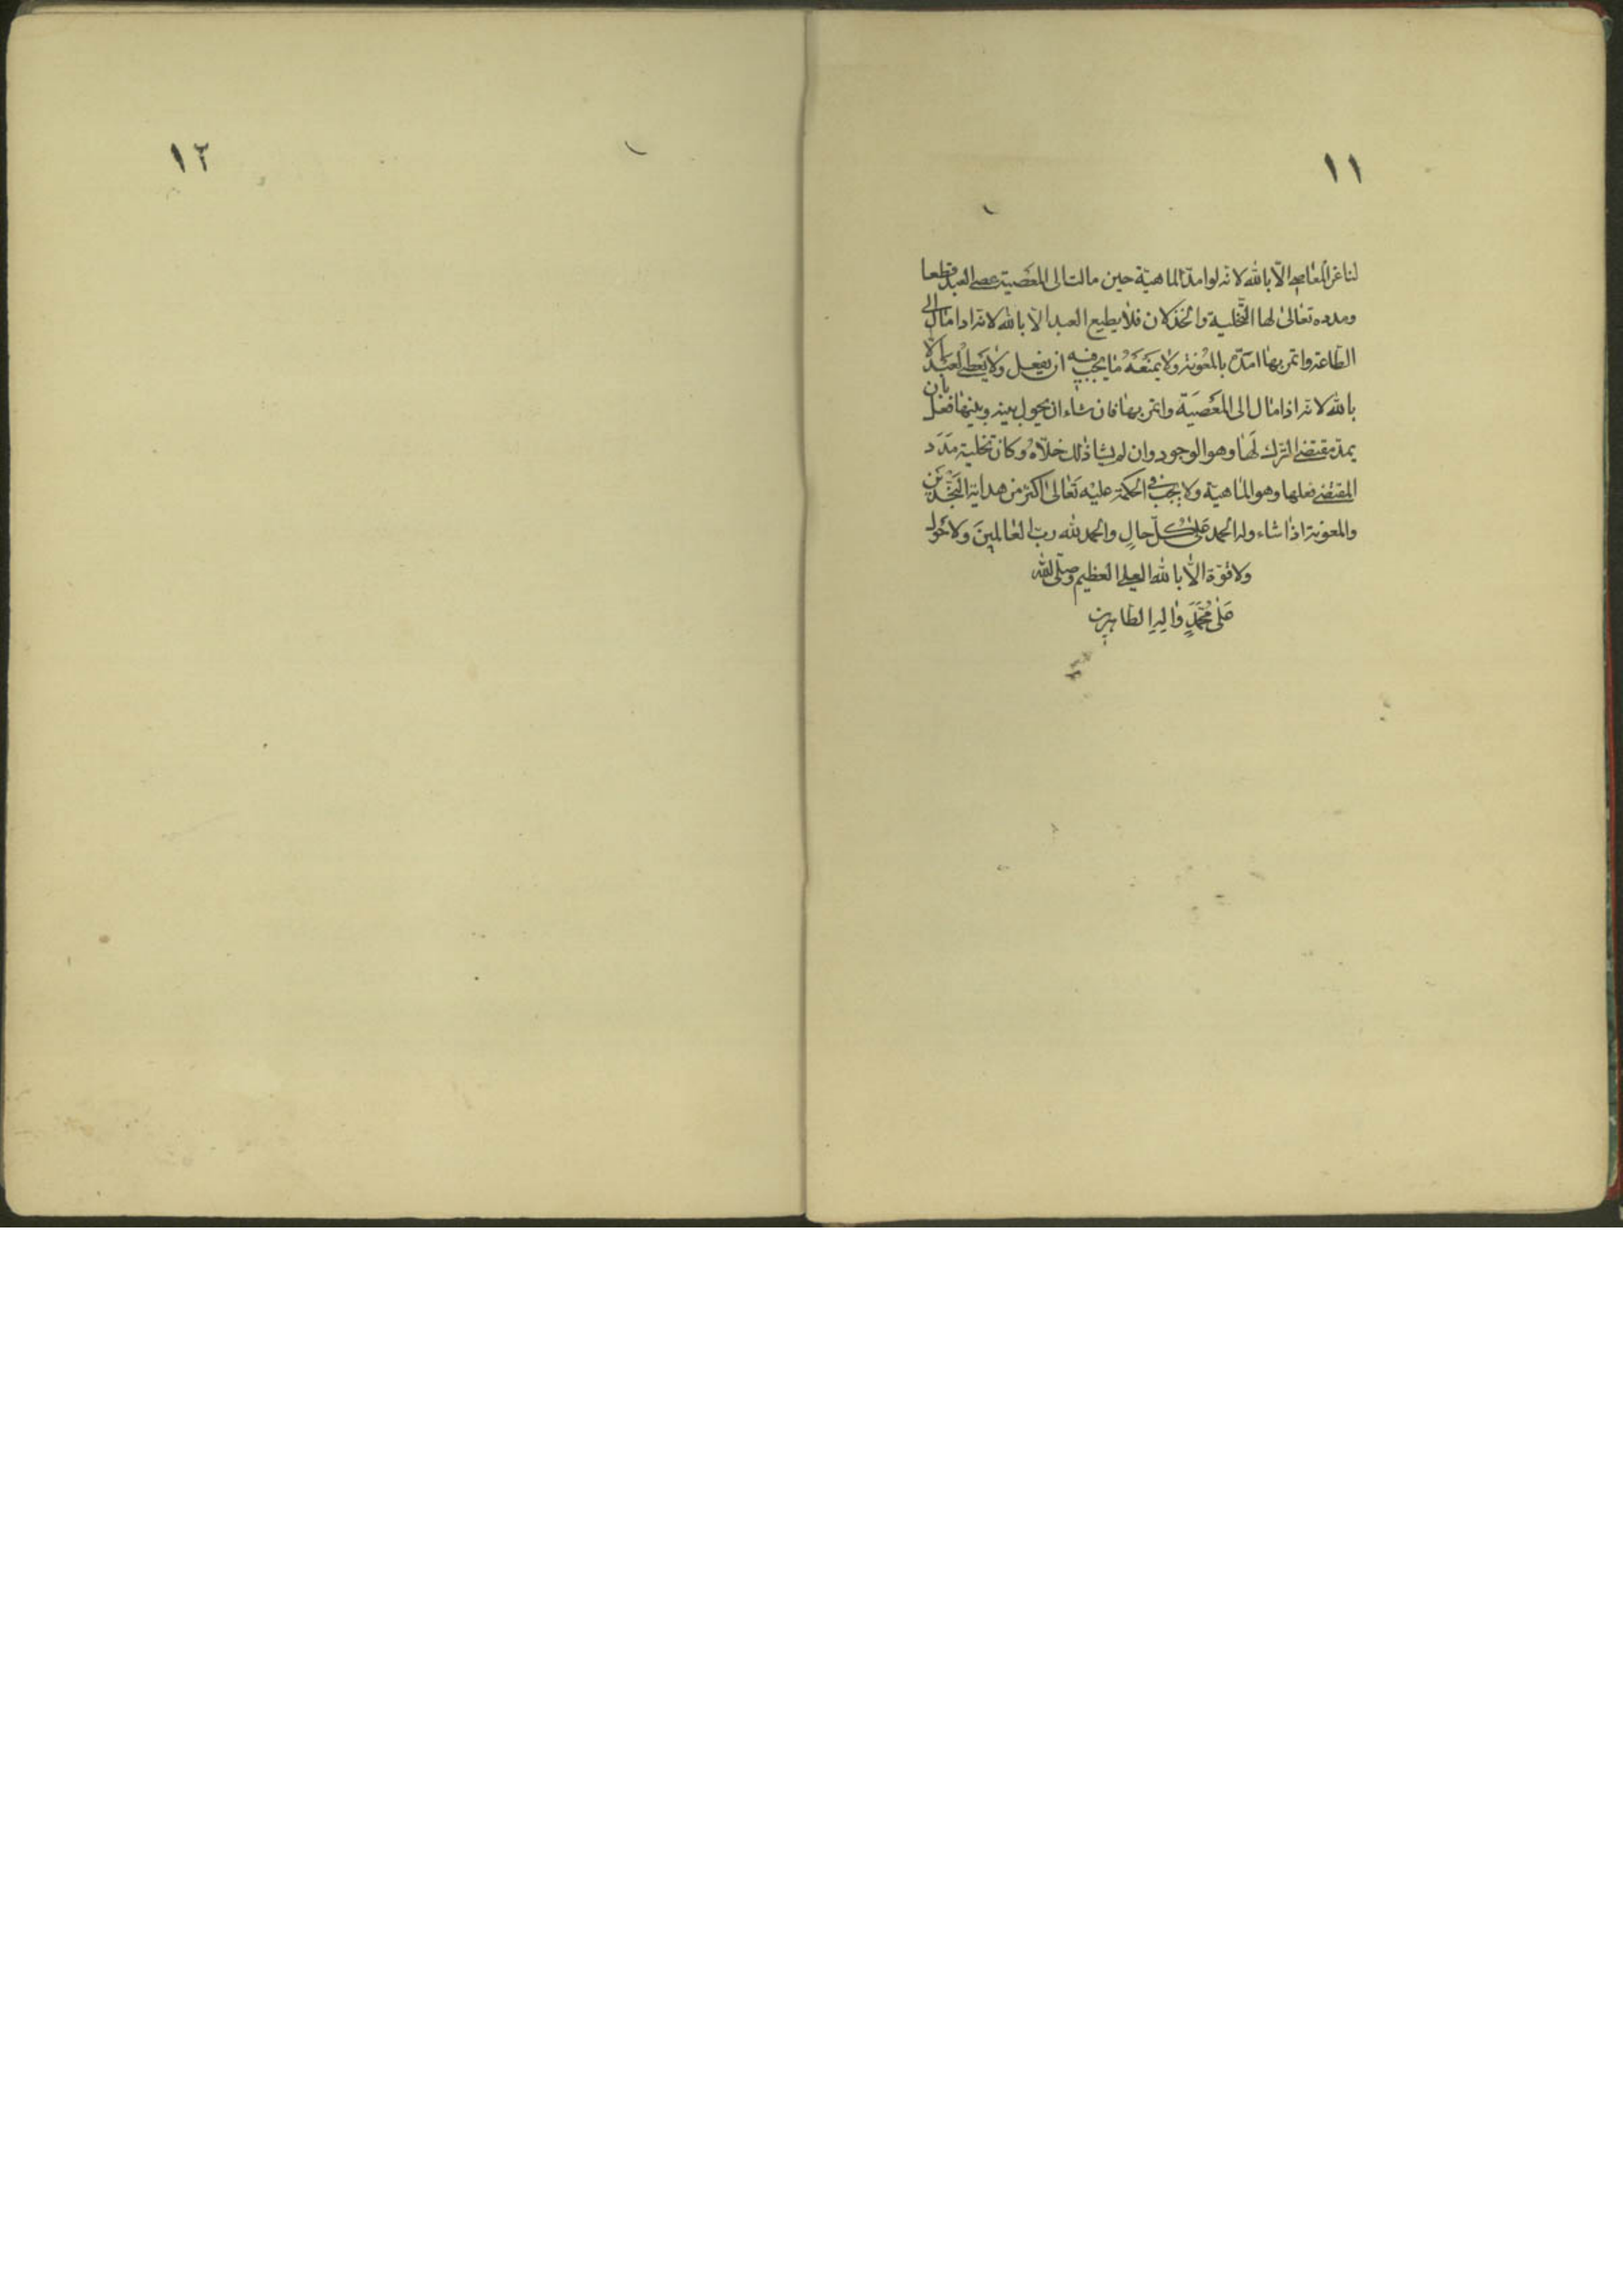 ١١
لنا عن المعاصي الّا بالله لانه لو امدّ الماهيّة حين مالت الى المعصية عصى العبد قطعا
ومدده تعالى لها التّخلية والخذلان فلا يطيع العبد الّا بالله لانه اذا مال الى
الطاعة وائتمر بها امدّه بالمعونة ولا يمنعه ما يجب فيه ان يفعل ولا العبد الّا
بالله لانه اذا مال الى المعصية بها فان شاء ان يحول بينه وبينها فعل بان
يمدّ مقتضى الترك لها وهو الوجود وان لم يشأ ذلك خلّاه وكان تخلية مدد
المقتضى فعلها وهو الماهيّة ولا يجب في الحكمة عليه تعالى اكثر من هداية النّجدين
والمعونة اذا شاء وله الحمد على كلّ حالٍ والحمد لله ربّ العالمين ولا حول
ولا قوّة الّا بالله العلي العظيم وصلّى الله
على محمّدٍ واله الطاهرين
١٢